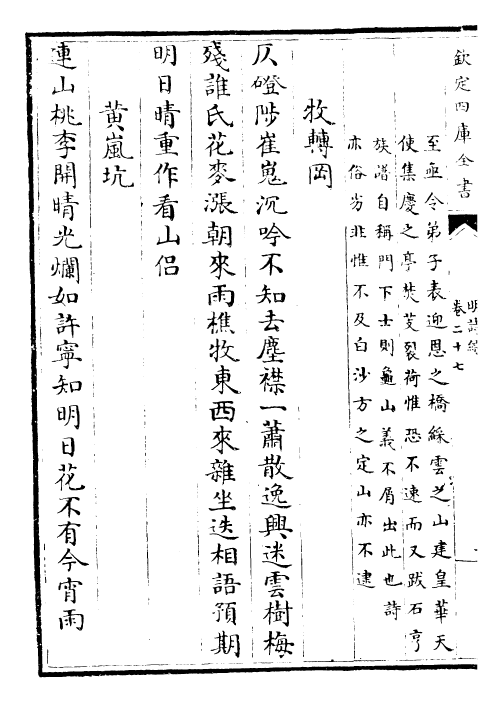 欽定四庫全書
明詩綜
卷二十七
至亟令弟子表迎恩之橋綵雲之山建皇華天
使集慶之亭焚芰裂荷惟恐不速而又跋石亨
族譜自稱門下士則龜山義不屑出此也詩
亦俗劣非惟不及白沙方之定山亦不逮
牧轉岡
仄磴陟崔嵬沉吟不知去塵襟一蕭散逸興迷雲樹梅
殘誰氏花麥漲朝來雨樵牧東西來雜坐迭相語預期
明日晴重作看山侶
黄嵐坑
連山桃李開晴光爛如許寧知明日花不有今宵雨